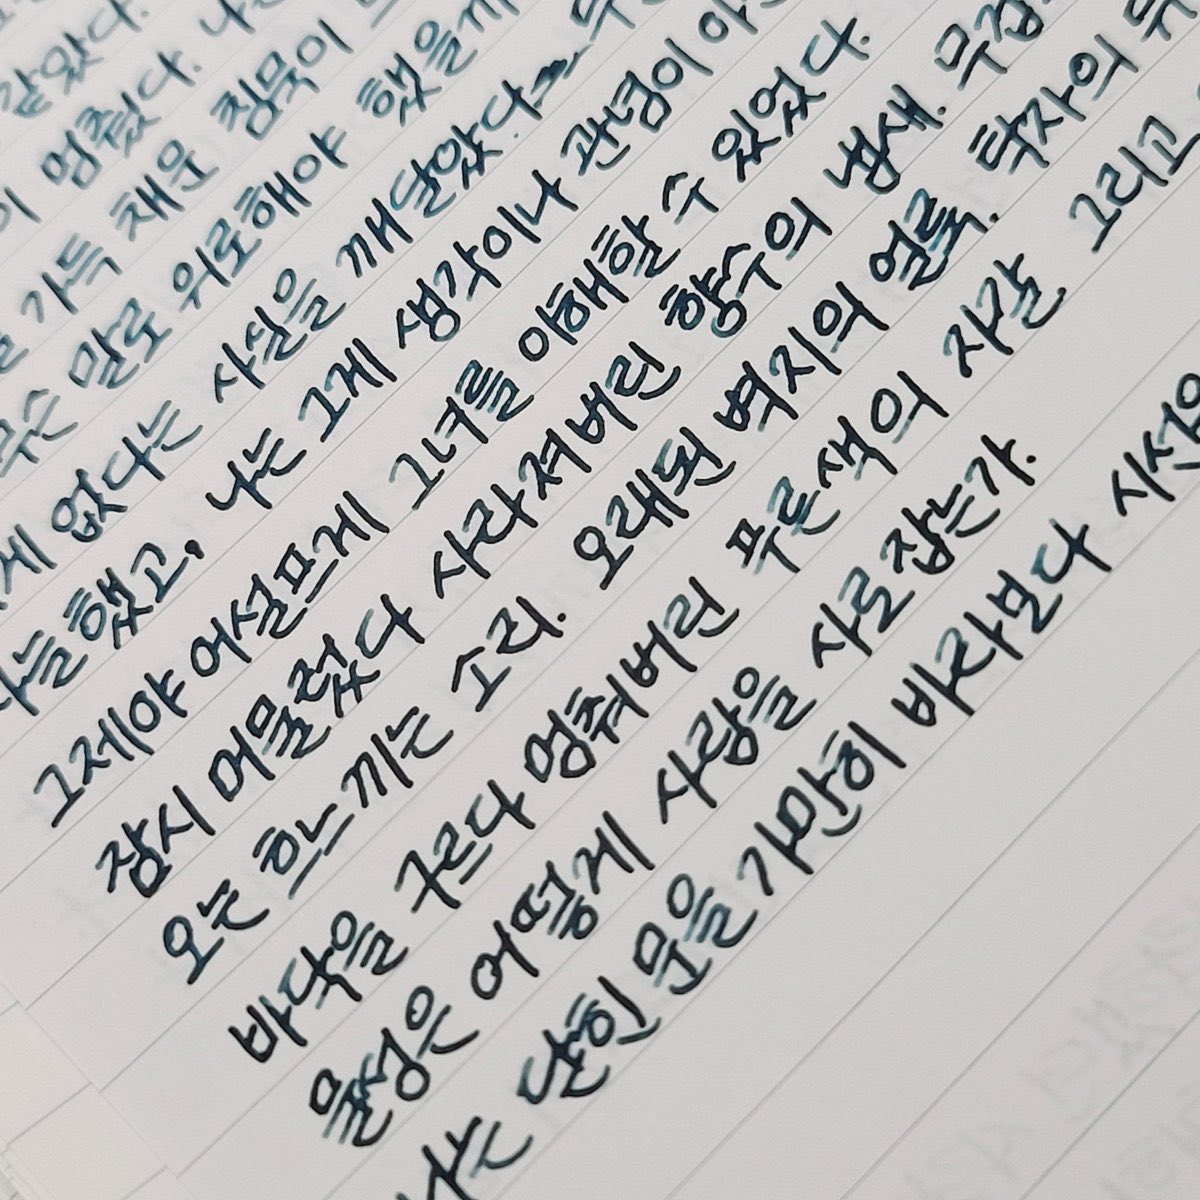 같았다.
멈췄다. 나
가득 채운 침묵이
말로 위로해야 했을까
게 없다는 사실을 깨달았다
나는 그게 생각이나 관념이
늘 했고,
그제야 어설프게 그녀를 이해할 수 있었다.
잠시 머물렀다 사라져버린 향수의 냄새.
오는 흐느끼는 소리. 오래된 벽지의 얼룩. 탁자의
바닥을 구르다 멈춰버린 푸른색의 자갈 그리고
음성은 어떻게 사람을 사로잡는가.
나는 닫힌 문을 가만히 바라보다